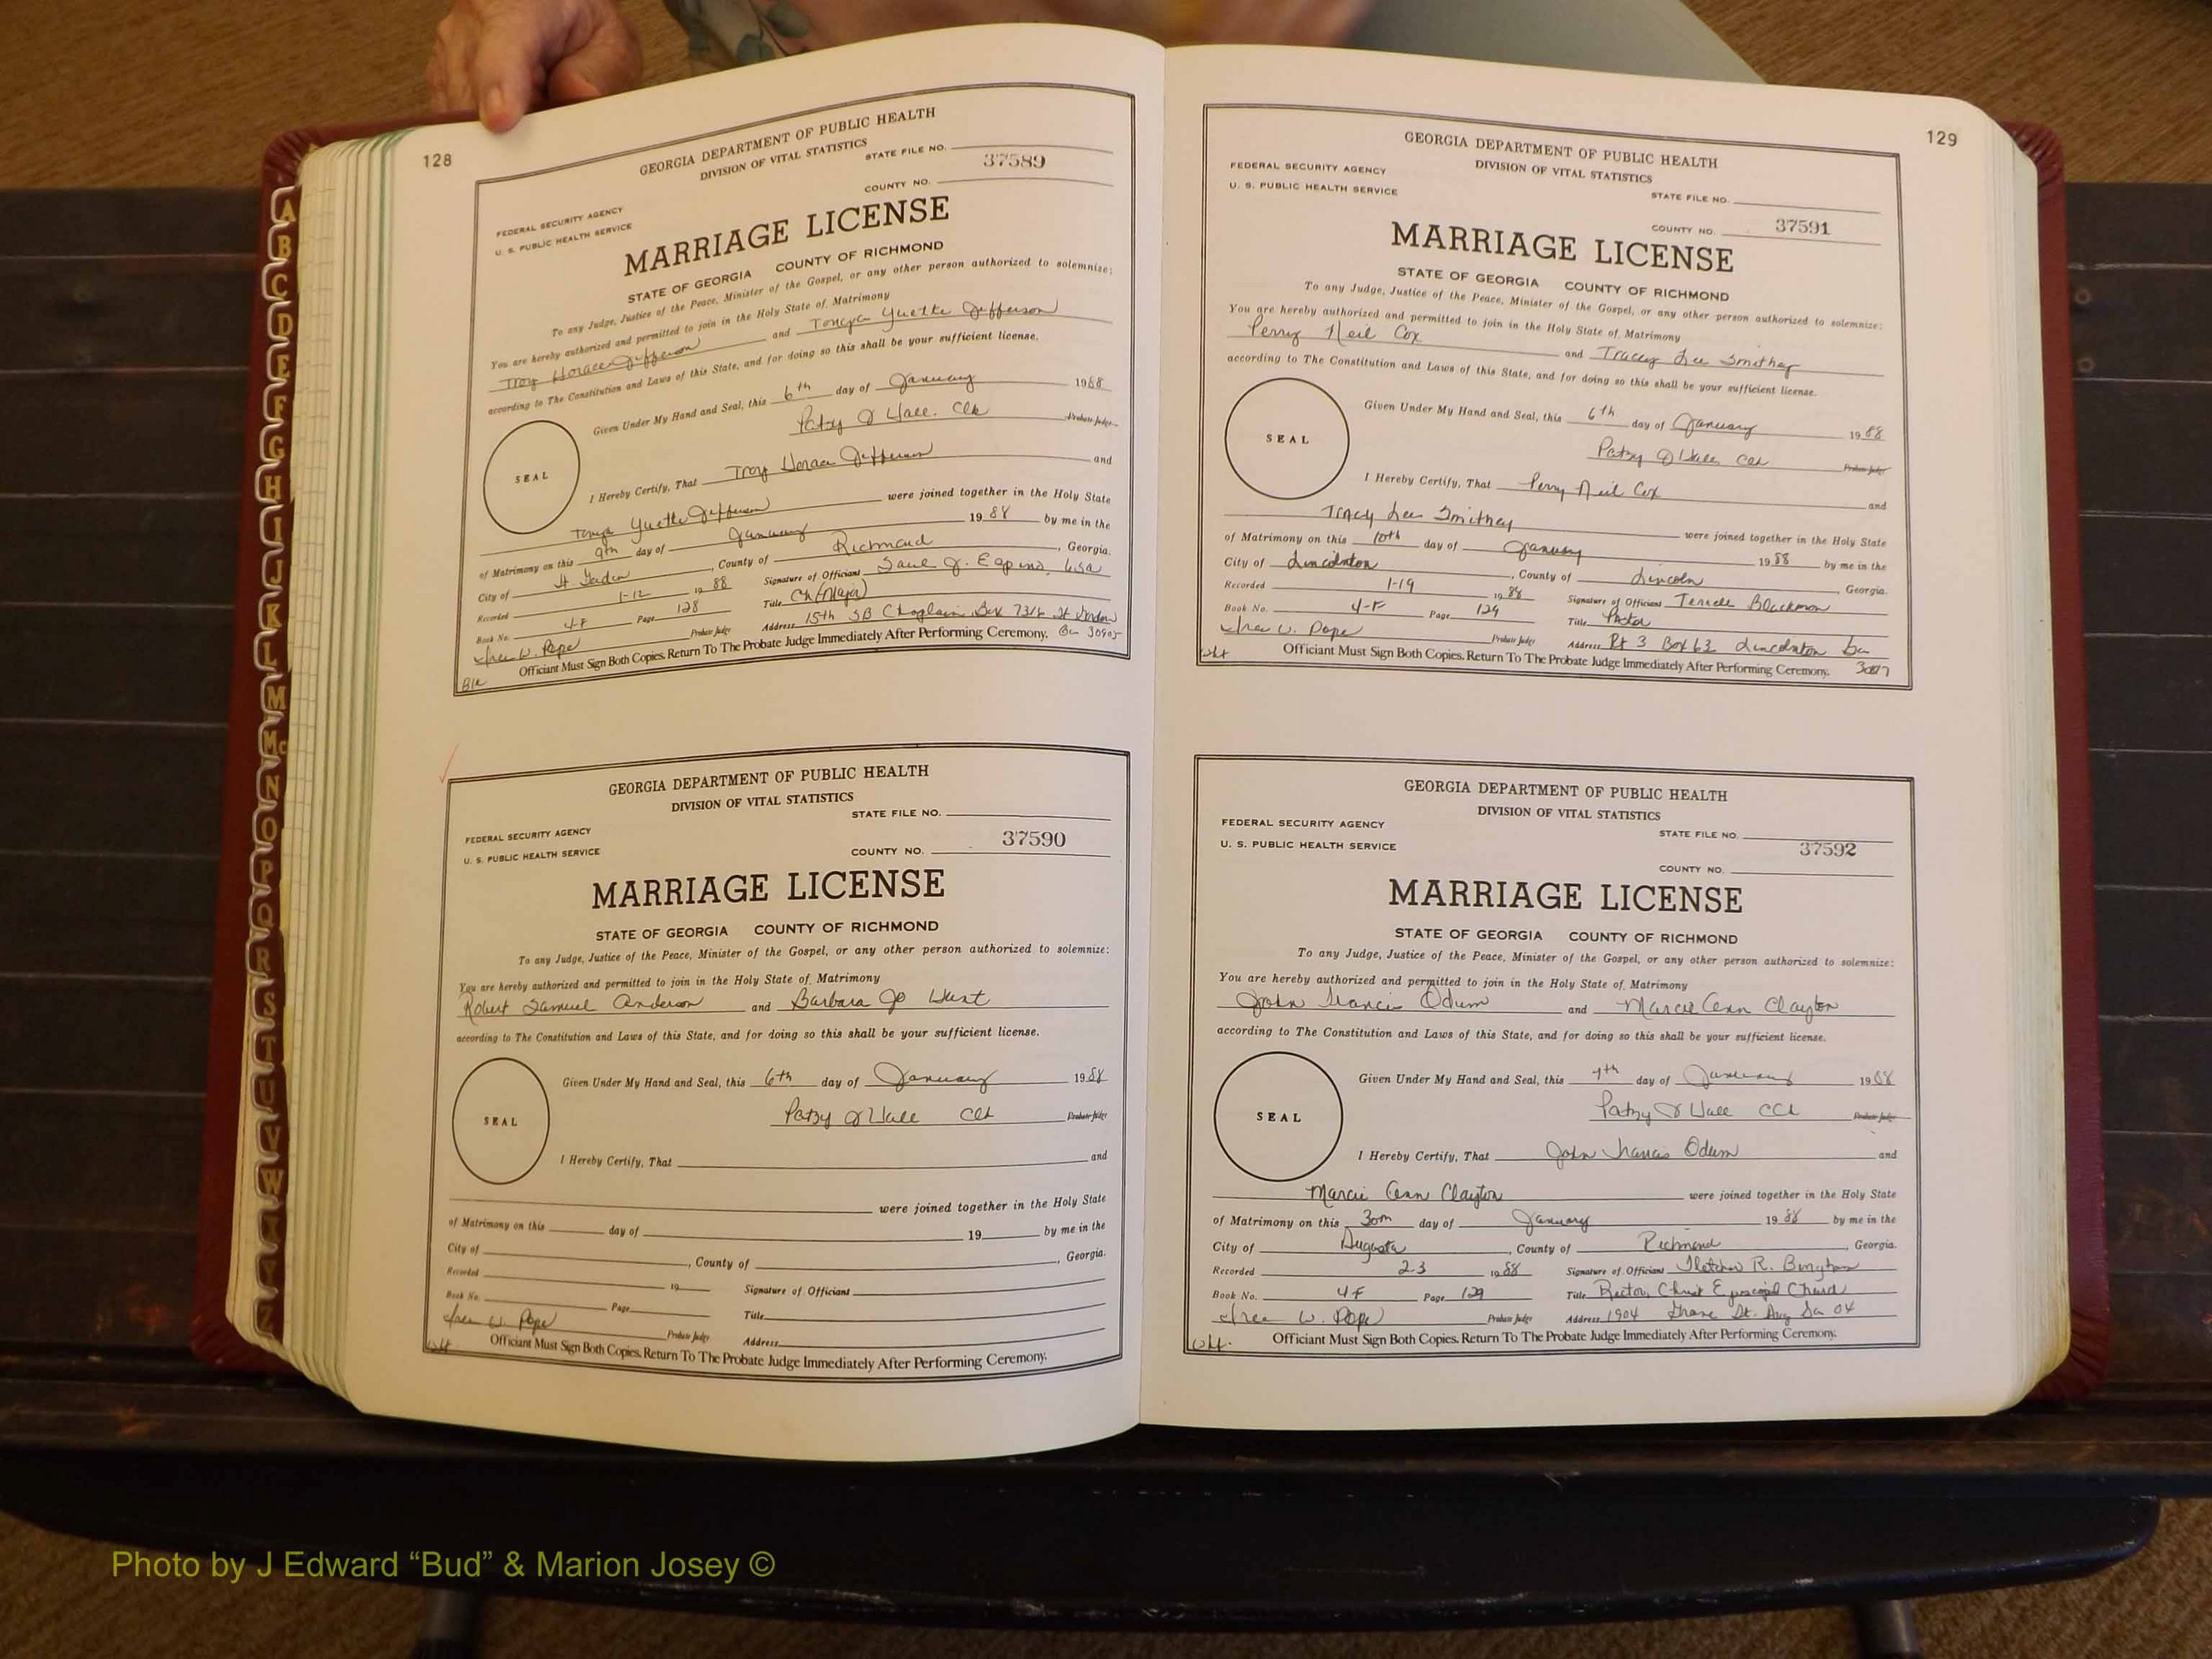 128
GEORGIA DEPARTMENT OF PUBLIC HEALTH
DIVISION OF VITAL STATISTICS
STATE FILE NO.
37589
COUNTY NO.
FEDERAL SECURITY AGENCY
U. S. PUBLIC HEALTH SERVICE
MARRIAGE LICENSE
STATE OF GEORGIA COUNTY OF RICHMOND
To any Judge, Justice of the Peace, Minister of the Gospel, or any other person authorized to solemnize:
You are hereby authorized and permitted to join in the Holy State of Matrimony
Troy Horace Jefferson and Tonya Yvette Jefferson
according to The Constitution and Laws of this State, and for doing so this shall be your sufficient license.
Given Under My Hand and Seal, this 6th day of January 1988
Patsy J Wall. Clk Probate Judge
SEAL
I Hereby Certify, That Troy Horace Jefferson and
Tonya Yvette Jefferson were joined together in the Holy State
of Matrimony on this 9th day of January 1988 by me in the
City of Ft Gordon, County of Richmond, Georgia.
Recorded 1-12 1988 Signature of Officiant J. USA
Book No. 4-F Page 128 Title Ch (Major)
W. Pope Probate Judge Address 15th SB Chaplain, Box Ft Gordon
Ga 30905
Officiant Must Sign Both Copies. Return To The Probate Judge Immediately After Performing Ceremony.
Blk
GEORGIA DEPARTMENT OF PUBLIC HEALTH
DIVISION OF VITAL STATISTICS
STATE FILE NO.
FEDERAL SECURITY AGENCY
U. S. PUBLIC HEALTH SERVICE
37590
COUNTY NO.
MARRIAGE LICENSE
STATE OF GEORGIA COUNTY OF RICHMOND
To any Judge, Justice of the Peace, Minister of the Gospel, or any other person authorized to solemnize:
You are hereby authorized and permitted to join in the Holy State of Matrimony
Robert Samuel Anderson and Barbara Jo Hunt
according to The Constitution and Laws of this State, and for doing so this shall be your sufficient license.
Given Under My Hand and Seal, this 6th day of January 1988
Patsy J Wall Clk Probate Judge
SEAL
I Hereby Certify, That and
were joined together in the Holy State
of Matrimony on this day of 19 by me in the
City of , County of , Georgia.
Recorded 19 Signature of Officiant
Book No. Page Title
W. Pope Probate Judge Address
Officiant Must Sign Both Copies. Return To The Probate Judge Immediately After Performing Ceremony.
Wht
129
GEORGIA DEPARTMENT OF PUBLIC HEALTH
DIVISION OF VITAL STATISTICS
FEDERAL SECURITY AGENCY
U. S. PUBLIC HEALTH SERVICE
STATE FILE NO.
COUNTY NO. 37591
MARRIAGE LICENSE
STATE OF GEORGIA COUNTY OF RICHMOND
To any Judge, Justice of the Peace, Minister of the Gospel, or any other person authorized to solemnize:
You are hereby authorized and permitted to join in the Holy State of Matrimony
Perry Neil Cox and Tracey Lee Smithey
according to The Constitution and Laws of this State, and for doing so this shall be your sufficient license.
Given Under My Hand and Seal, this 6th day of January 1988
Patsy J Wall Clk Probate Judge
SEAL
I Hereby Certify, That Perry Neil Cox and
Tracy Lee Smithey were joined together in the Holy State
of Matrimony on this 10th day of January 1988 by me in the
City of Lincolnton, County of Lincoln, Georgia.
Recorded 1-19 1988 Signature of Officiant Terrell Blackmon
Book No. 4-F Page 129 Title Pastor
W. Pope Probate Judge Address Rt 3 Box 63 Lincolnton Ga
Officiant Must Sign Both Copies. Return To The Probate Judge Immediately After Performing Ceremony.
Wht
GEORGIA DEPARTMENT OF PUBLIC HEALTH
DIVISION OF VITAL STATISTICS
FEDERAL SECURITY AGENCY
U. S. PUBLIC HEALTH SERVICE
STATE FILE NO.
37592
COUNTY NO.
MARRIAGE LICENSE
STATE OF GEORGIA COUNTY OF RICHMOND
To any Judge, Justice of the Peace, Minister of the Gospel, or any other person authorized to solemnize:
You are hereby authorized and permitted to join in the Holy State of Matrimony
John Francis Odum and Marcie Ann Clayton
according to The Constitution and Laws of this State, and for doing so this shall be your sufficient license.
Given Under My Hand and Seal, this 7th day of January 1988
Patsy J Wall CCk Probate Judge
SEAL
I Hereby Certify, That John Francis Odum and
Marcie Ann Clayton were joined together in the Holy State
of Matrimony on this 30th day of January 1988 by me in the
City of Augusta, County of Richmond, Georgia.
Recorded 2-3 1988 Signature of Officiant Fletcher R.
Book No. 4F Page 129 Title Rector, Christ Episcopal Church
W. Pope Probate Judge Address 1904 St. Aug Ga 04
Officiant Must Sign Both Copies. Return To The Probate Judge Immediately After Performing Ceremony.
Wht.
A
B
C
D
E
F
G
H
I
J
K
L
M
Mc
N
O
P
Q
R
S
T
U
V
W
Photo by J Edward “Bud” & Marion Josey ©